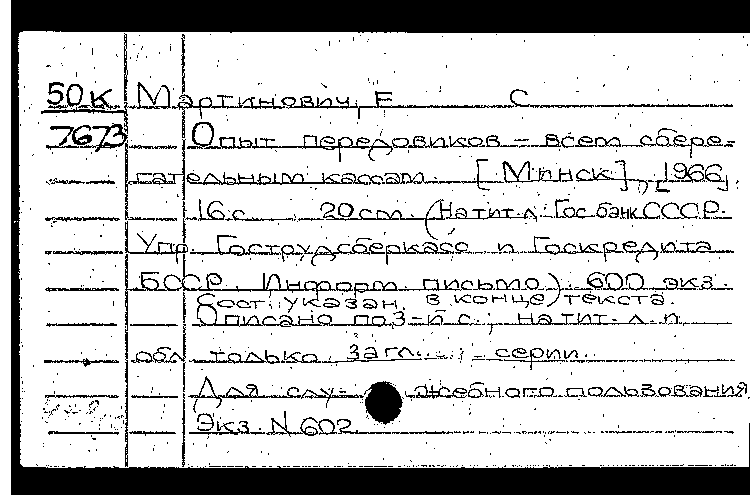 50К Мартинович, Е С
7673 Опыт передовиков – всем сбере-
гательным кассам. [Минск], [1966].
16 с. 20 см. (На тит. л.: Гос. банк СССР.
Упр. Гострудсберкасс и Госкредита
БССР. Информ. письмо). 600 экз.
Сост. указан в конце текста.
Описано по 3-й с.; на тит. л. и
обл. только загл. серии.
Для служебного пользования
Экз. N 602